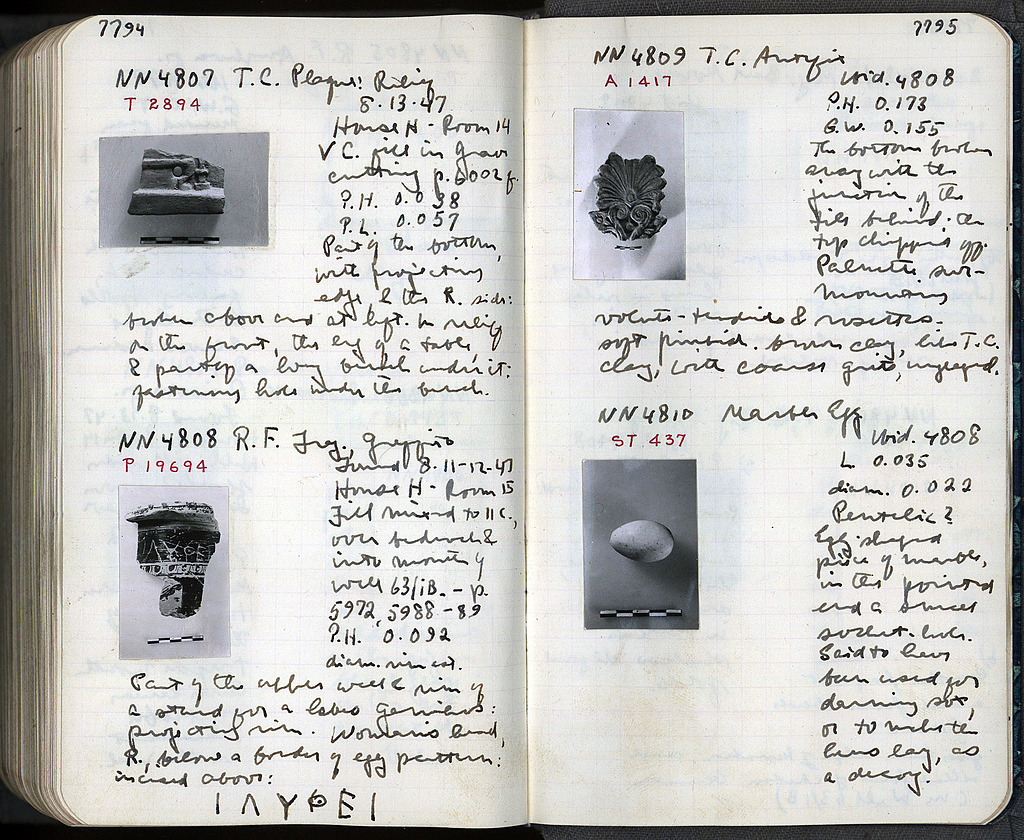 7794
NN 4807 T.C. Plaque: Relief
T 2894
8-13-47
House H - Room 14
V C. fill in grave
cutting p. 6002 f.
P.H. 0.038
P.L. 0.057
Part of the bottom,
with projecting
edge, & the R. side:
broken above and at left. In relief
on the front, the leg of a table,
& part of a long bench under it:
fastening hole under the bench.
NN 4808 R.F. Frag. Graffito
P 19694
Found 8-11-12-47
House H - Room 15
Fill mixed to II C.,
over bedrock &
into mouth of
well 63/ΙΒ. - p.
5972, 5988-89
P.H. 0.092
diam. rim est.
Part of the upper wall & rim of
a stand for a lebes gamikos:
projecting rim. Woman's head,
R., below a border of egg pattern:
incised above:
ΙΛΥΘΕΙ
7795
NN 4809 T.C. Antefix
A 1417
Ibid. 4808
P.H. 0.173
G.W. 0.155
The bottom broken
away with the
junction of the
tile behind; the
top chipped off.
Palmette sur-
mounting
volute-tendrils & rosettes.
soft pinkish-brown clay, like T.C.
clay, with coarse grits, unglazed.
NN 4810 Marble Egg
ST 437
Ibid. 4808
L. 0.035
diam. 0.022
Pentelic?
Egg-shaped
piece of marble,
in the pointed
end a small
socket-hole.
Said to have
been used for
darning sox,
or to make the
hens lay, as
a decoy.